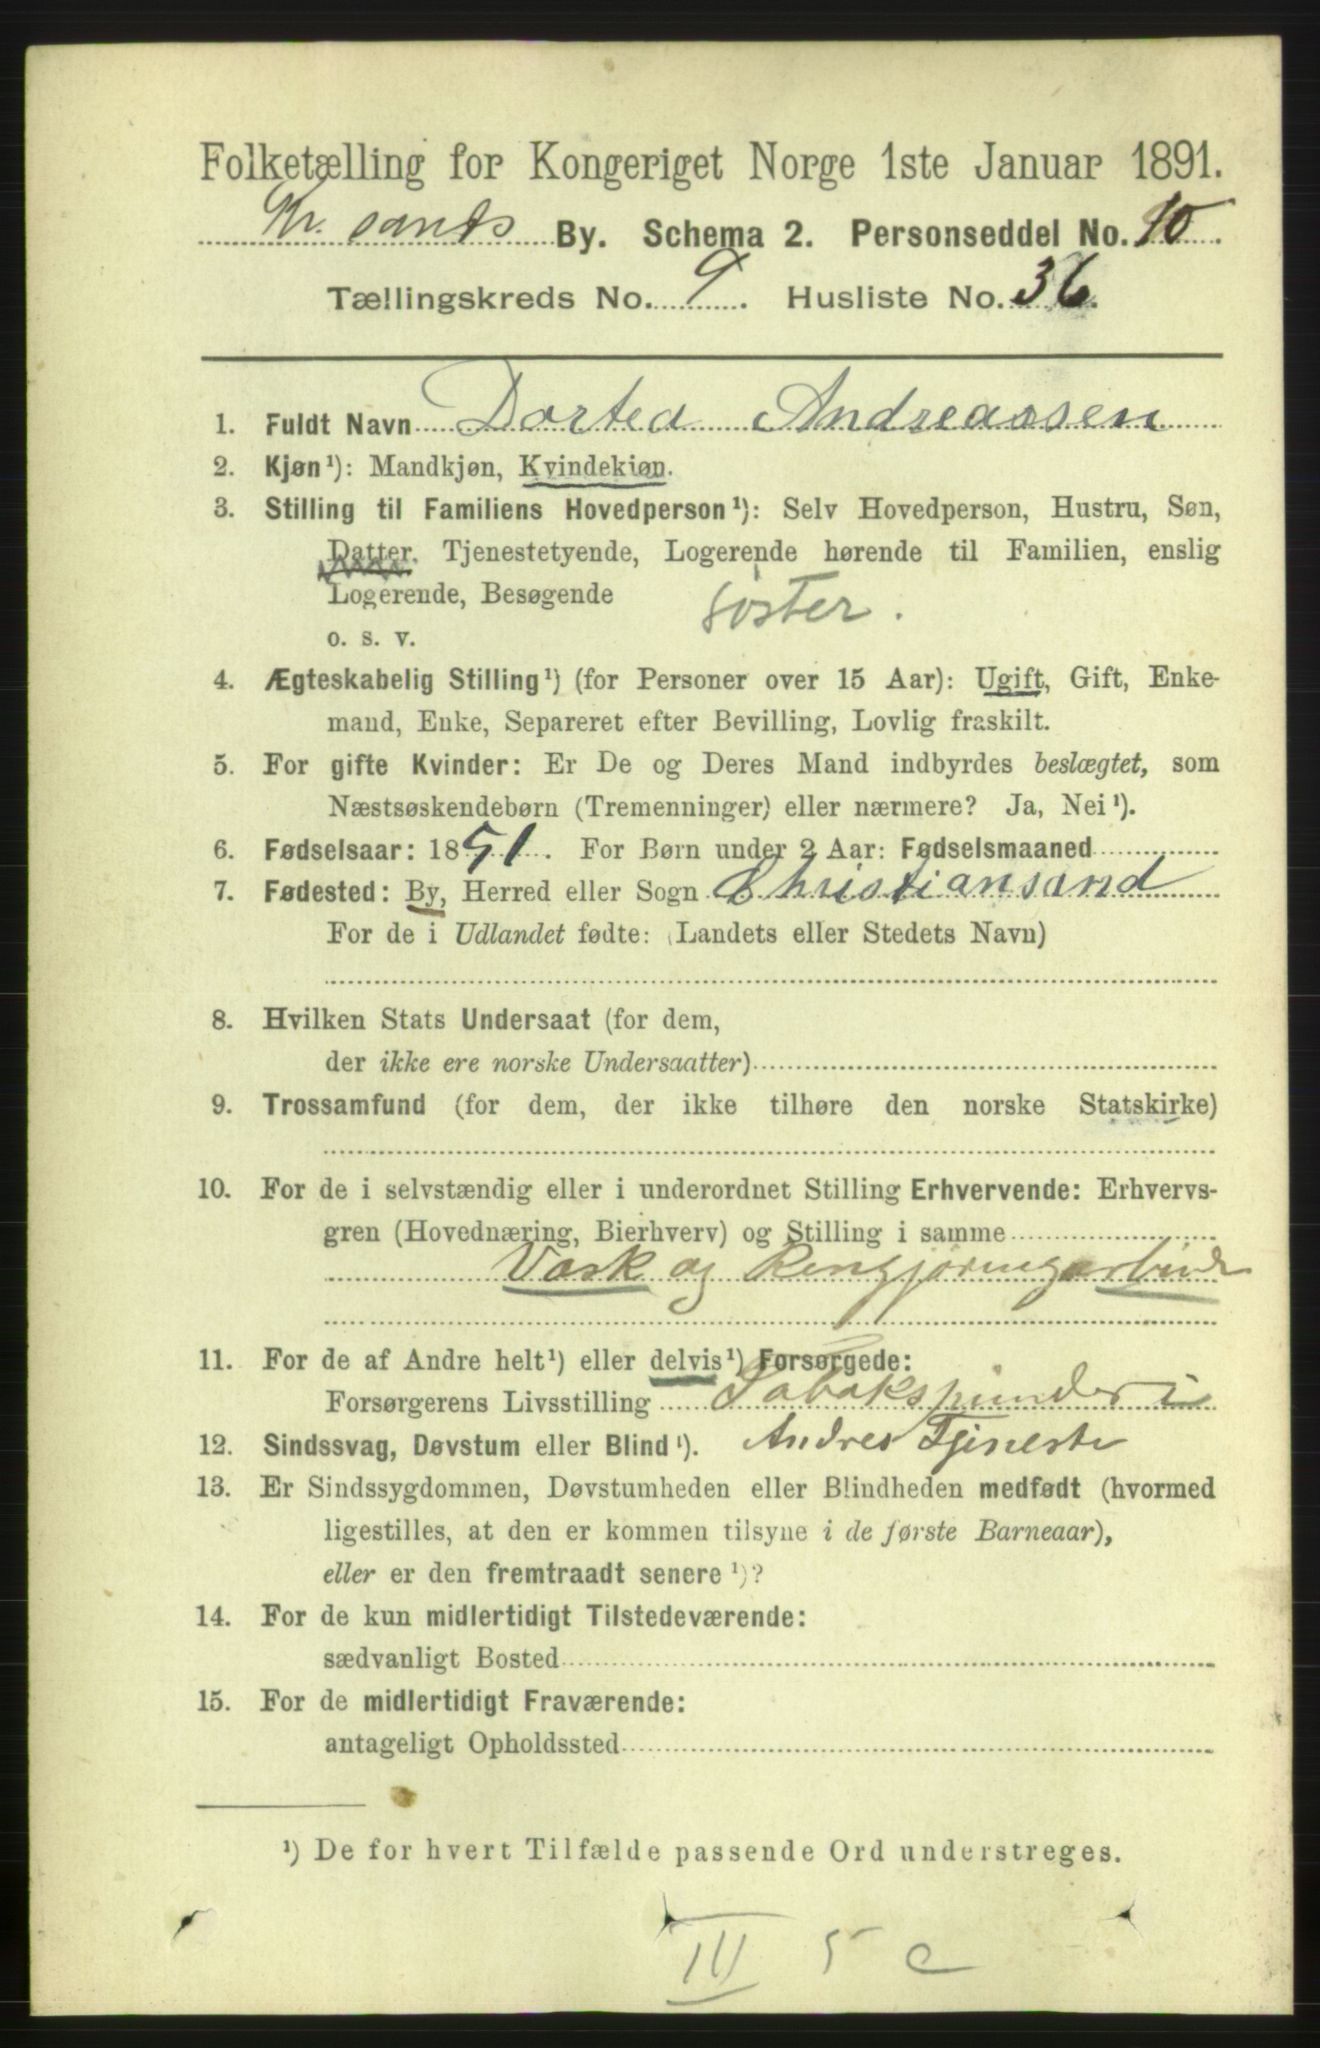 Folketælling for Kongeriget Norge 1ste Januar 1891.
Kr. sands By. Schema 2. Personseddel No. 10.
Tællingskreds No. 9. Husliste No. 36.
1. Fuldt Navn Dortea Andreassen
2. Kjøn¹): Mandkjøn, Kvindekjøn.
3. Stilling til Familiens Hovedperson¹): Selv Hovedperson, Hustru, Søn,
Datter, Tjenestetyende, Logerende hørende til Familien, enslig
Logerende, Besøgende
søster.
o. s. v.
4. Ægteskabelig Stilling¹) (for Personer over 15 Aar): Ugift, Gift, Enke-
mand, Enke, Separeret efter Bevilling, Lovlig fraskilt.
5. For gifte Kvinder: Er De og Deres Mand indbyrdes beslægtet, som
Næstsøskendebørn (Tremenninger) eller nærmere? Ja, Nei¹).
6. Fødselsaar: 1851. For Børn under 2 Aar: Fødselsmaaned
7. Fødested: By, Herred eller Sogn Christiansand
For de i Udlandet fødte: (Landets eller Stedets Navn)
8. Hvilken Stats Undersaat (for dem,
der ikke ere norske Undersaatter)
9. Trossamfund (for dem, der ikke tilhøre den norske Statskirke)
10. For de i selvstændig eller i underordnet Stilling Erhvervende: Erhvervs-
gren (Hovednæring, Bierhverv) og Stilling i samme
Vask og Rengjøringsarbeide
11. For de af Andre helt¹) eller delvis¹) Forsørgede:
Forsørgerens Livsstilling Tobakspinder i
12. Sindssvag, Døvstum eller Blind¹). Andres Tjeneste
13. Er Sindssygdommen, Døvstumheden eller Blindheden medfødt (hvormed
ligestilles, at den er kommen tilsyne i de første Barneaar),
eller er den fremtraadt senere¹)?
14. For de kun midlertidigt Tilstedeværende:
sædvanligt Bosted
15. For de midlertidigt Fraværende:
antageligt Opholdssted
¹) De for hvert Tilfælde passende Ord understreges.
III 5 c